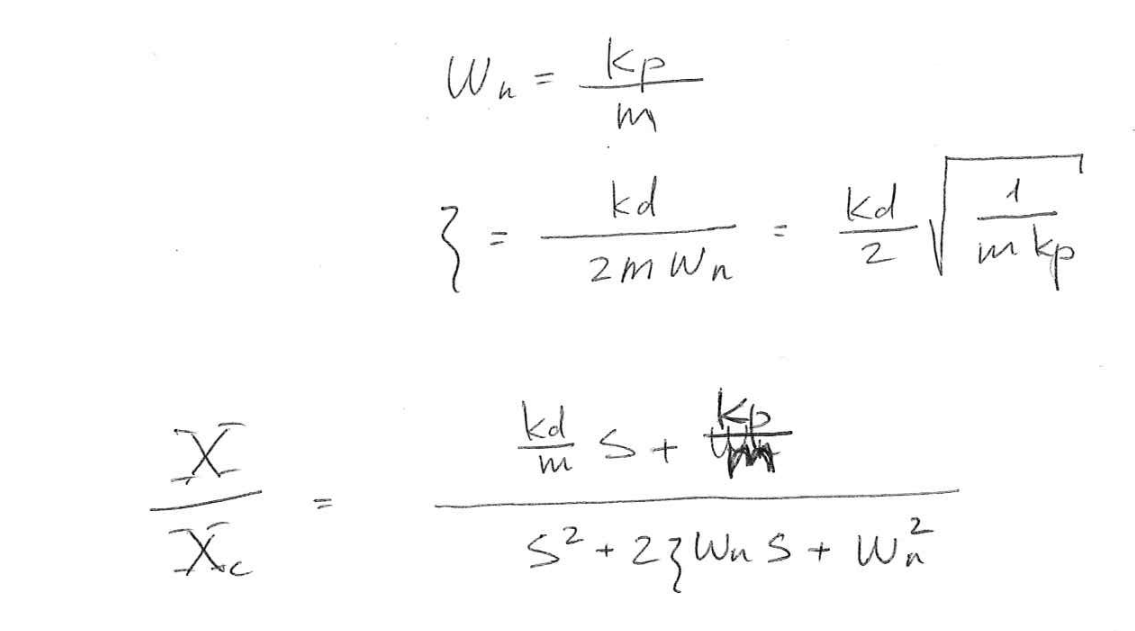 Wn = kp / m
ξ = kd / 2m Wn = kd / 2 √(1 / m kp)
X / Xc = (kd / m s + kp / m) / (s² + 2ξWn s + Wn²)